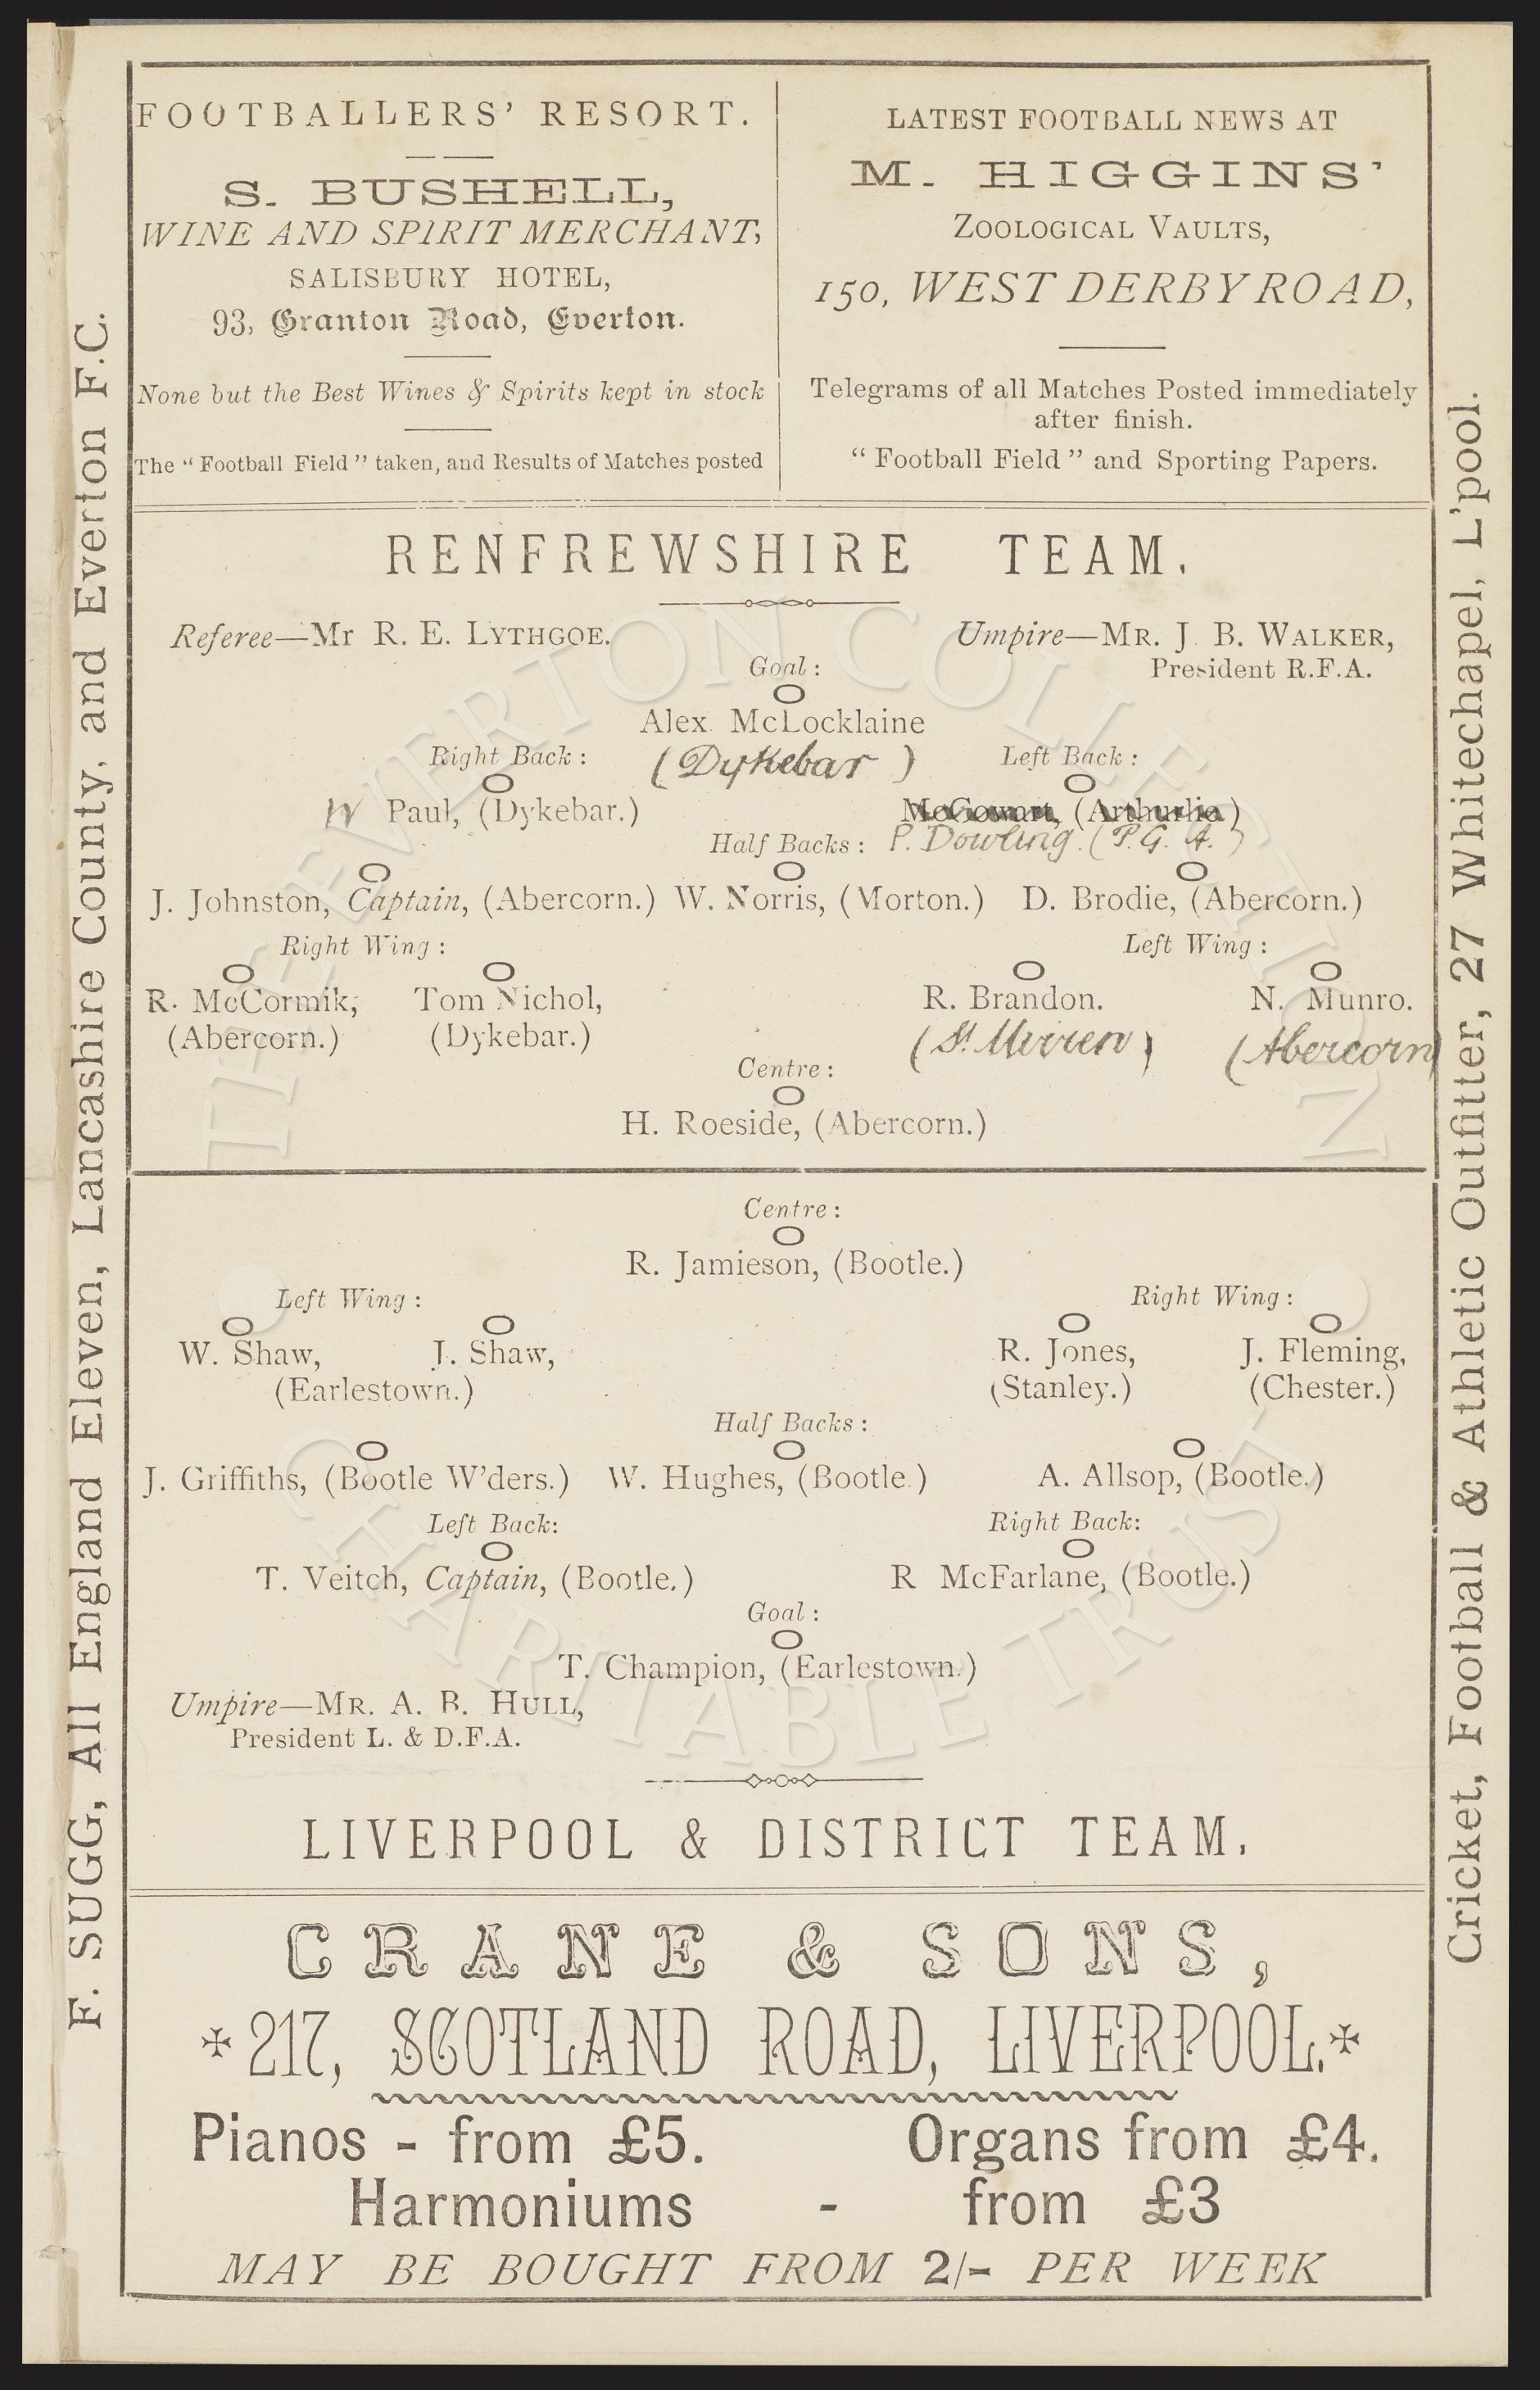 FOOTBALLERS' RESORT.
S. BUSHELL,
WINE AND SPIRIT MERCHANT,
SALISBURY HOTEL,
93, Granton Road, Everton.
None but the Best Wines & Spirits kept in stock
The "Football Field" taken, and Results of Matches posted
LATEST FOOTBALL NEWS AT
M. HIGGINS'
ZOOLOGICAL VAULTS,
150, WEST DERBY ROAD,
Telegrams of all Matches Posted immediately
after finish.
"Football Field" and Sporting Papers.
RENFREWSHIRE TEAM.
Referee—Mr R. E. LYTHGOE.
Umpire—MR. J. B. WALKER,
President R.F.A.
Goal:
Alex. McLocklaine
(Dykebar)
Right Back: Left Back:
W Paul, (Dykebar.) McGowan, (Arthurlie)
P. Dowling. (P.G. A.)
Half Backs:
J. Johnston, Captain, (Abercorn.) W. Norris, (Morton.) D. Brodie, (Abercorn.)
Right Wing: Left Wing:
R. McCormik, Tom Nichol, R. Brandon. N. Munro.
(Abercorn.) (Dykebar.) (St. Mirren) (Abercorn)
Centre:
H. Roeside, (Abercorn.)
Centre:
R. Jamieson, (Bootle.)
Left Wing: Right Wing:
W. Shaw, J. Shaw, R. Jones, J. Fleming,
(Earlestown.) (Stanley.) (Chester.)
Half Backs:
J. Griffiths, (Bootle W'ders.) W. Hughes, (Bootle.) A. Allsop, (Bootle.)
Left Back: Right Back:
T. Veitch, Captain, (Bootle.) R McFarlane, (Bootle.)
Goal:
T. Champion, (Earlestown.)
Umpire—MR. A. B. HULL,
President L. & D.F.A.
LIVERPOOL & DISTRICT TEAM.
CRANE & SONS,
217, SCOTLAND ROAD, LIVERPOOL.
Pianos - from £5. Organs from £4.
Harmoniums - from £3
MAY BE BOUGHT FROM 2/- PER WEEK
F. SUGG, All England Eleven, Lancashire County, and Everton F.C.
Cricket, Football & Athletic Outfitter, 27 Whitechapel, L'pool.
THE EVERTON COLLECTION
CHARITABLE TRUST